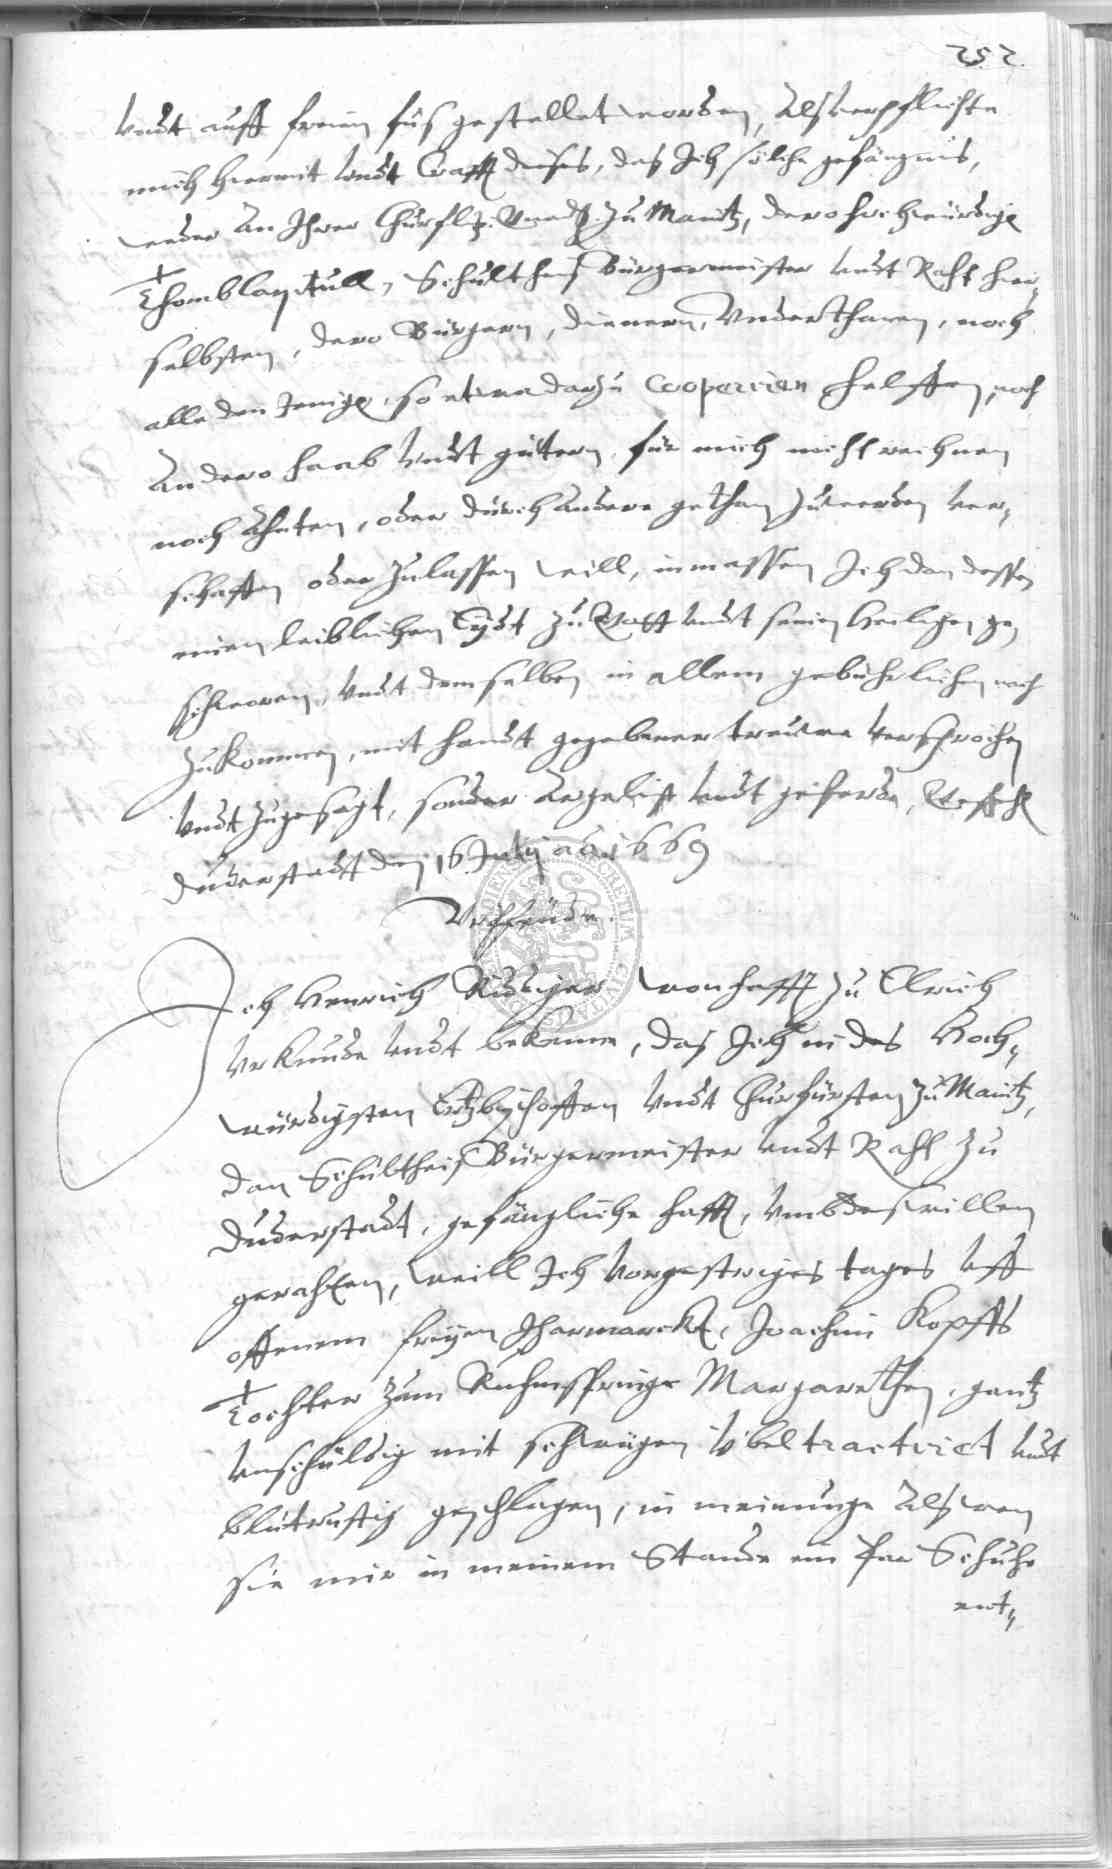 252.
Undt auff freien fus gestellet worden, Als verpflichte
mich hiermit undt Crafft dieses, das Ich solche gefängnis,
weder an Ihrer Churfl. Gnad. zu Maintz, dero hochwürdige
Thombcapitull, Schultheis Bürgermeister undt Raht hier„
selbsten, dero Bürgern, dienern, Underthanen, noch
alle den Jenige, so etwa darzu cooperiren helffen, noch
an dero haab undt gütern, für mich nicht rechnen
noch ahnten, oder durch andere gethan zu werden ver„
schaffen oder zulassen will, inmassen Ich dan dessen
einen leiblichen Eydt zu Gott undt seinen heiligen ge„
schworen, undt demselben in allem gebührlichen nach
zukommen, mit handt gegebener treuwe versprochen
undt zugesagt, sonder Argelist undt geferde,
Duderstadt den 16 July ao 1669
Urhfeude.
Ich Henrich Rüdiger wonhafft zu Elrich
Urkunde undt bekenne, das Ich in des Hoch„
würdigsten Ertzbischoffen undt Churfürsten zu Maintz,
dan Schultheis Bürgermeister undt Raht zu
Duderstadt, gefängliche hafft, umbdeswillen
gerahten, weill Ich vorgestriges tages uff
offenem freyen Jharmarckt, Joachim Kopffs
Tochter zum Ruhmspringe Margarethen, gantz
unschuldig mit schlägen übel tractiret undt
blutrustig geschlagen, in meinunge als wen
sie mir in meinem Stande ein Par Schuhe
ent„